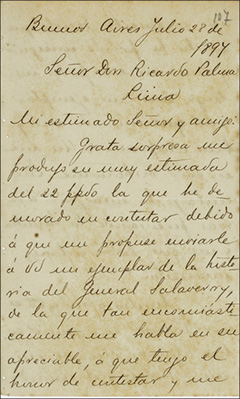 107
Buenos Aires Julio 28 de
1897
Señor Don Ricardo Palma
Lima
Mi estimado Señor y amigo:
Grata sorpresa me
produjo su muy estimada
del 22 ppdo la que he de
morado en contestar debido
á que me propuse enviarle
a Vd un ejemplar de la histo
ria del General Salaverry,
de la que tan encomiasti
camente me habla en su
apreciable, á que tengo el
honor de contestar y me